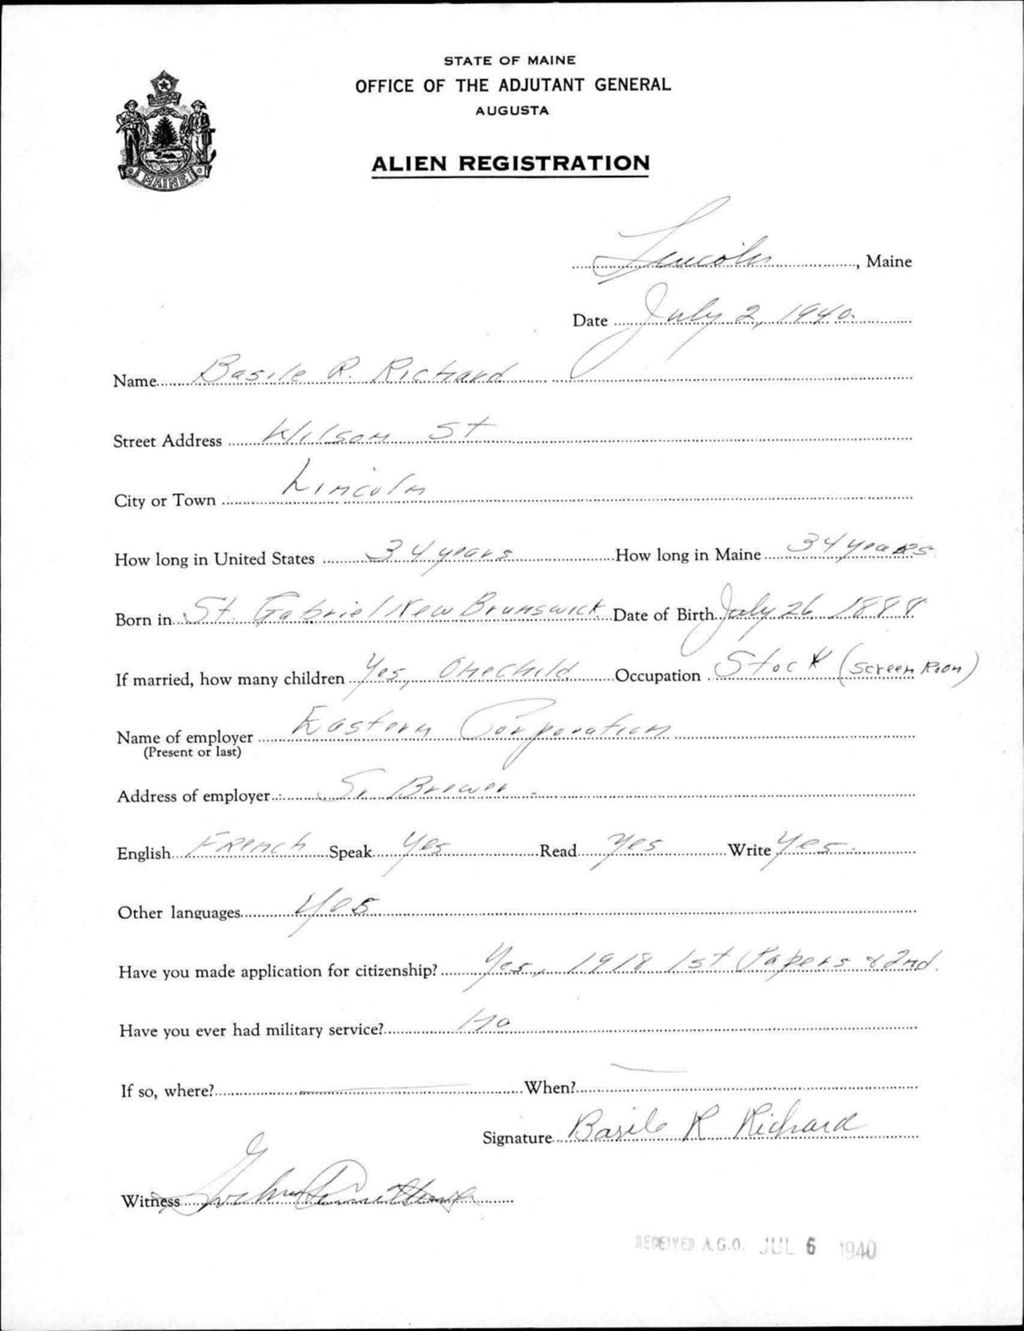 STATE OF MAINE
OFFICE OF THE ADJUTANT GENERAL
AUGUSTA
MAINE
ALIEN REGISTRATION
Lincoln, Maine
Date July 2, 1940.
Name Basile R. Richard
Street Address Wilson St
City or Town Lincoln
How long in United States 34 years How long in Maine 34 years
Born in St. Gabriel New Brunswick Date of Birth July 26 1888
If married, how many children Yes, One Child Occupation Stock (Screen Room)
Name of employer Eastern Corporation
(Present or last)
Address of employer So Brewer.
English French Speak Yes Read Yes Write Yes.
Other languages Yes
Have you made application for citizenship? Yes, 1918 1st Papers & 2nd.
Have you ever had military service? No
If so, where? When?
Signature Basile R Richard
Witness
RECEIVED A.G.O. JUL 6 1940